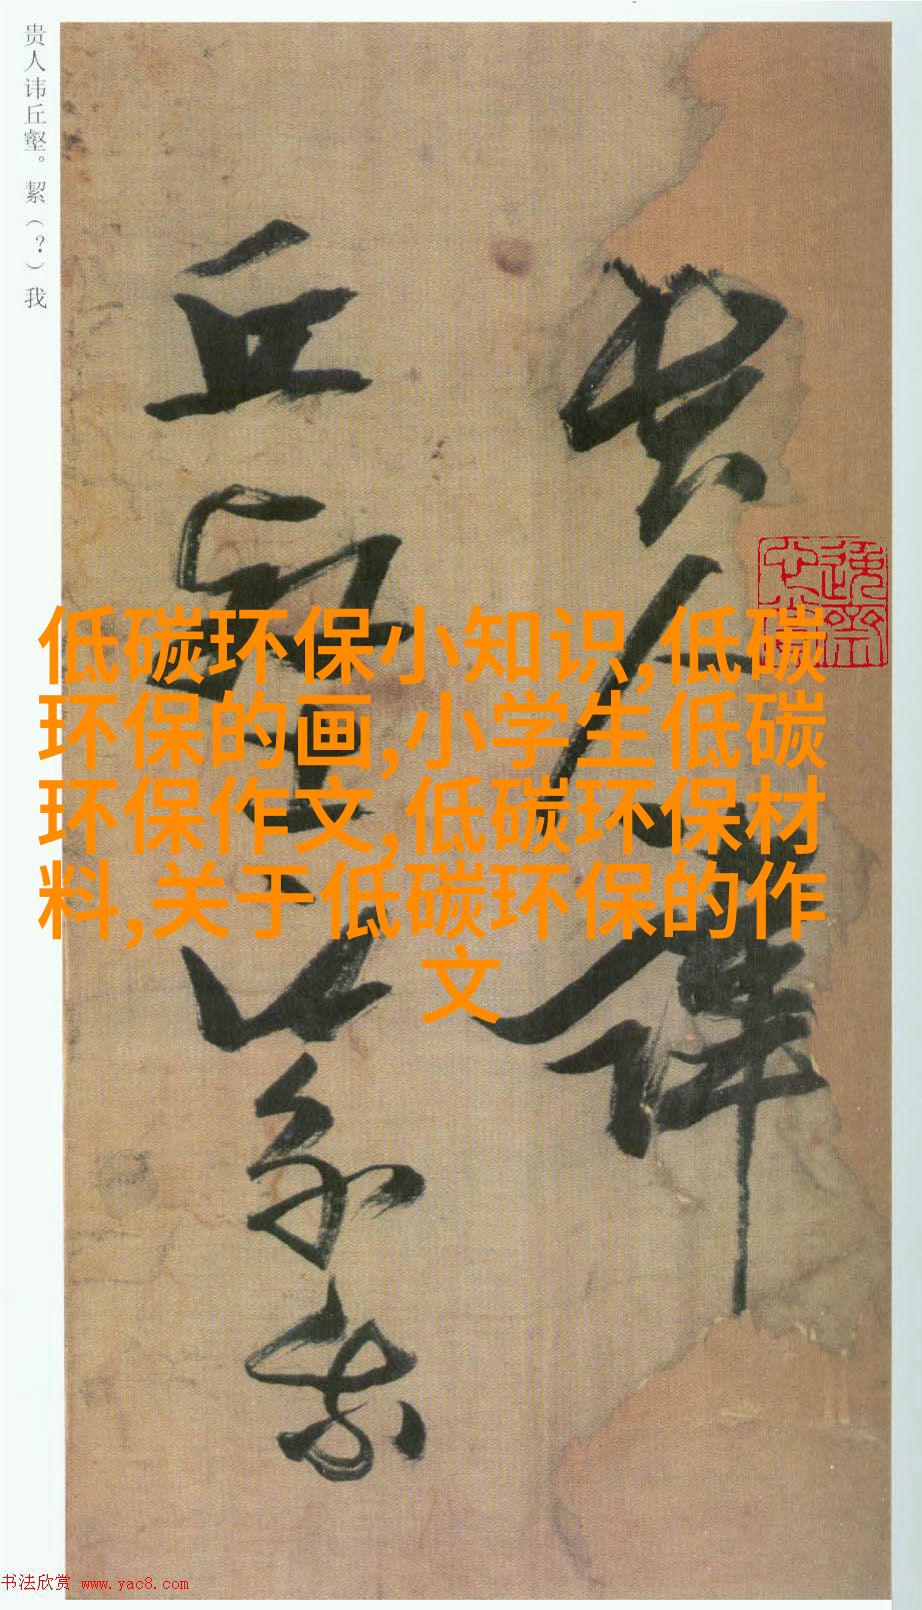 贵人讳丘壑。絜（？）我
贵人讳
丘壑
絜我
低碳环保小知识,低碳
环保的画,小学生低碳
环保作文,低碳环保材
料,关于低碳环保的作
文
书法欣赏 www.yac8.com